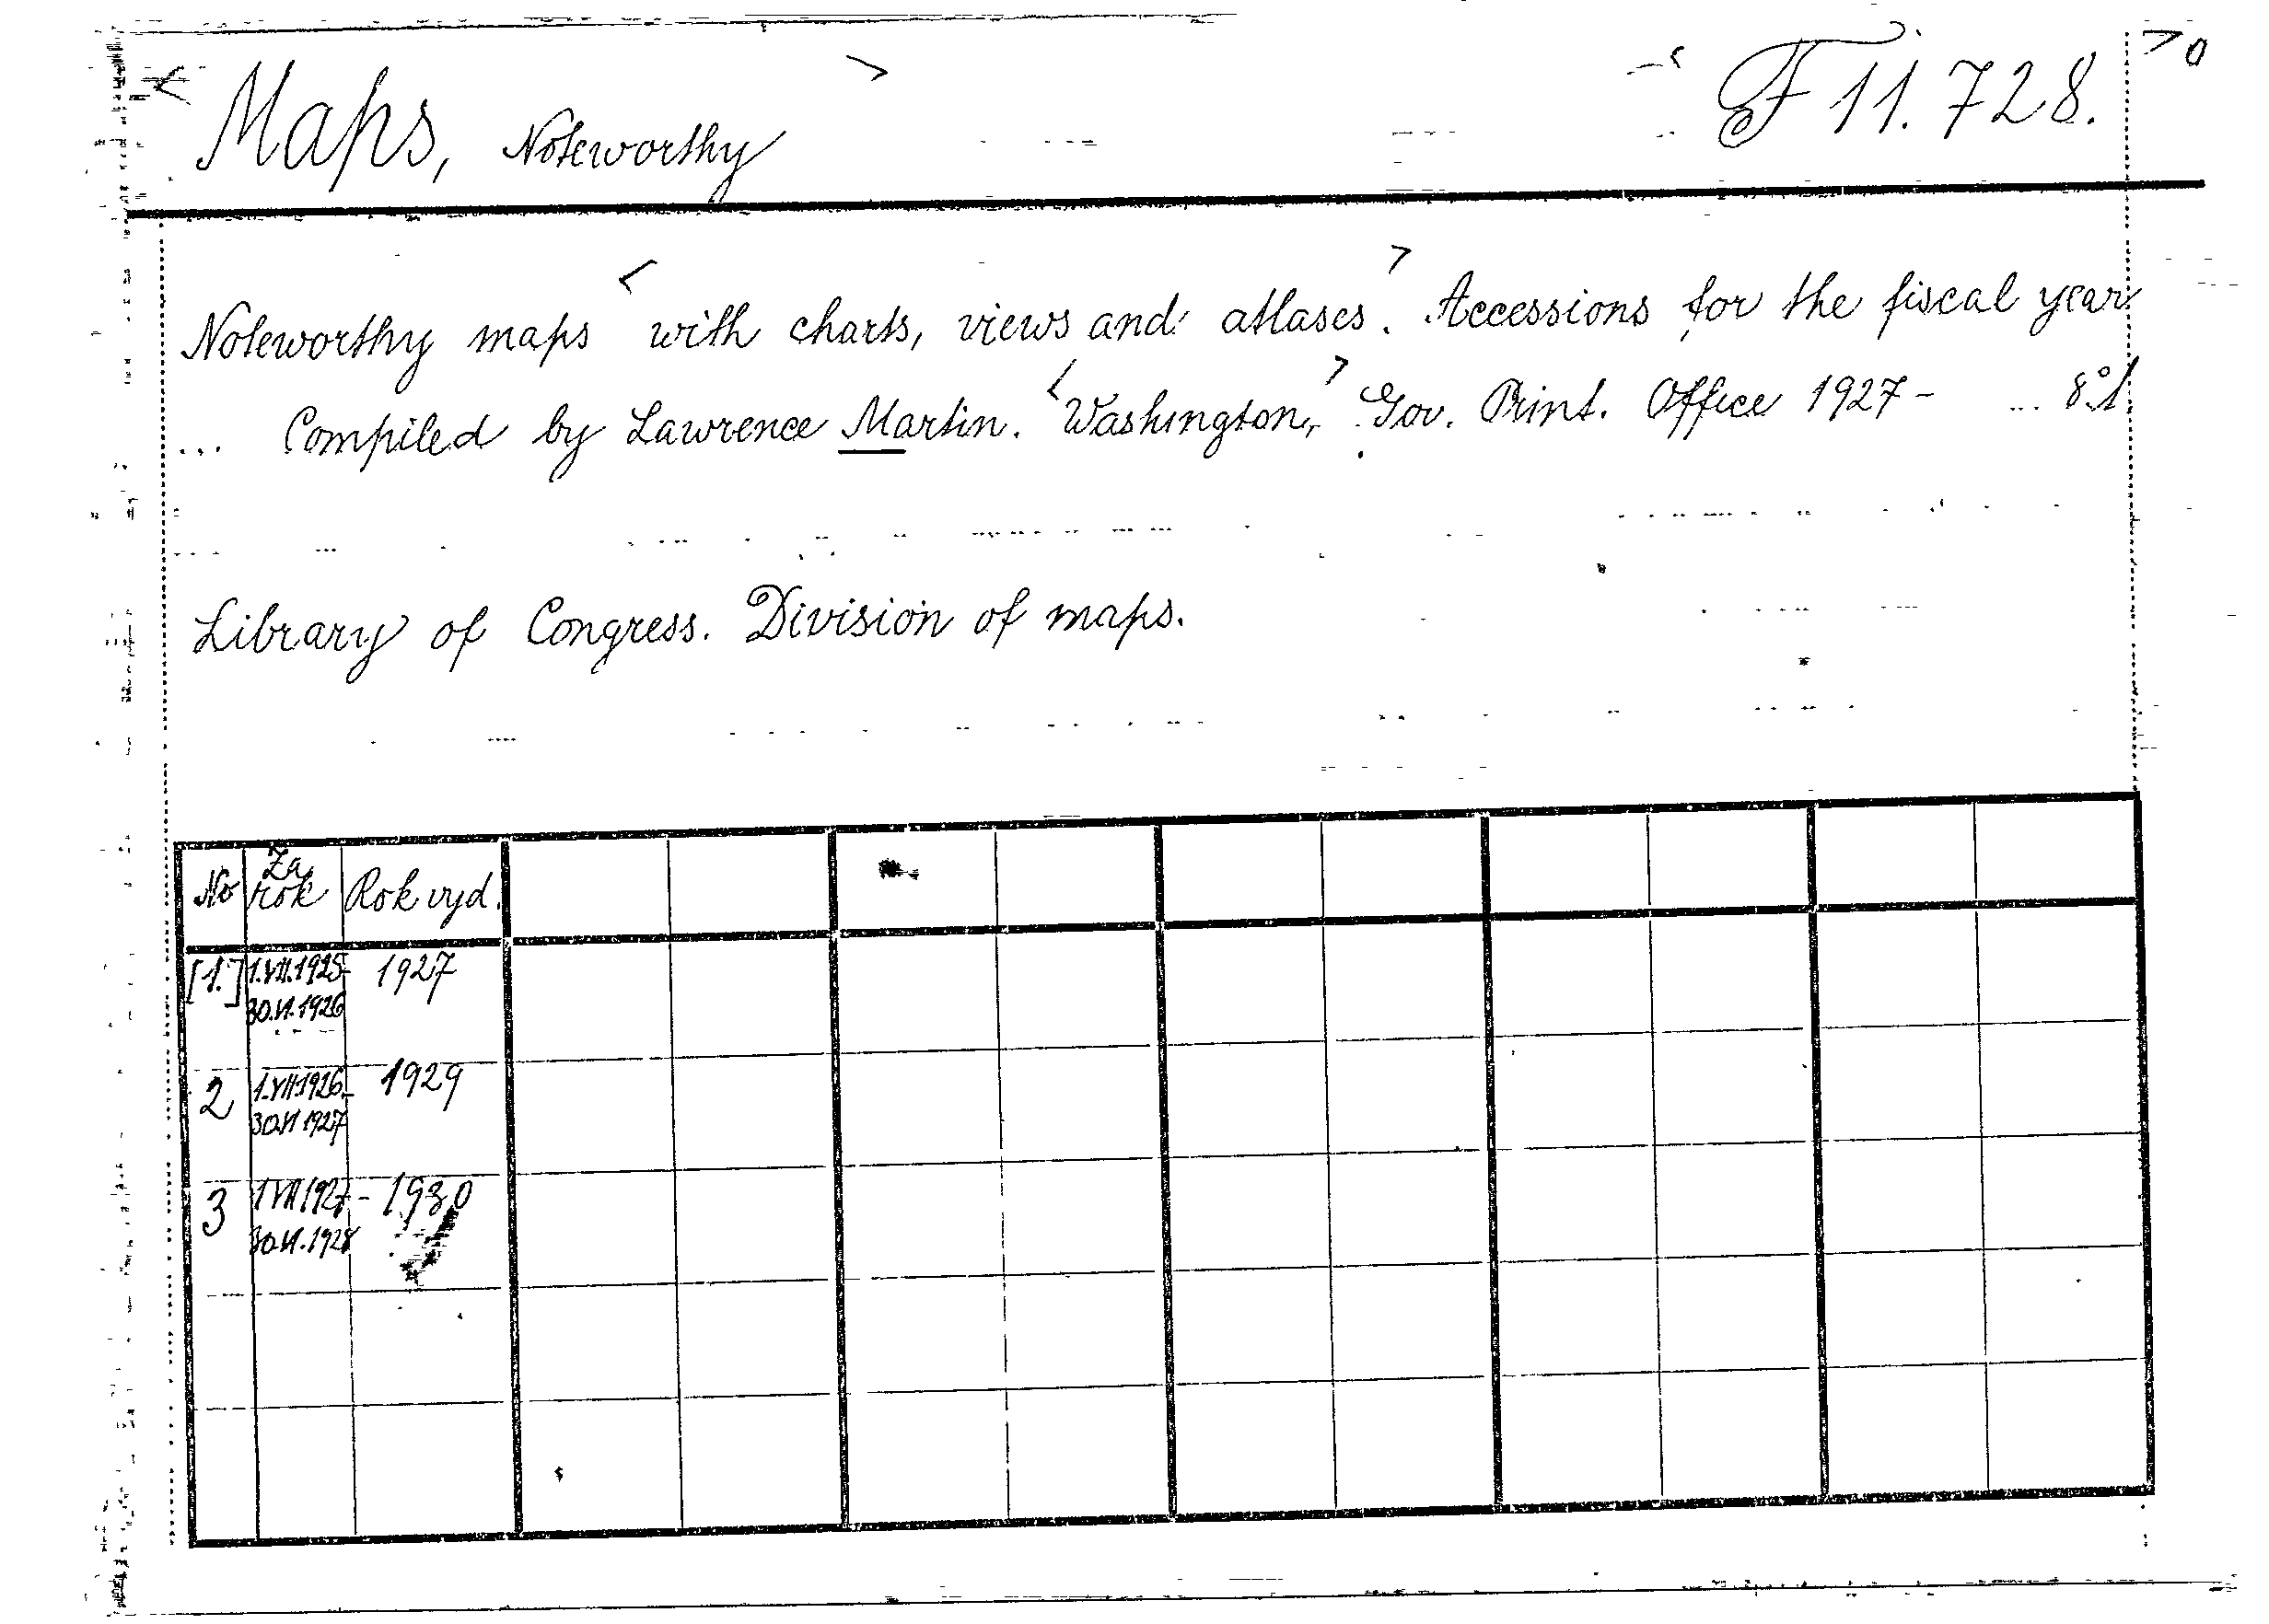 < Maps, Noteworthy > < F 11.728. > 0
Noteworthy maps < with charts, views and atlases. > Accessions for the fiscal year
... Compiled by Lawrence Martin. < Washington, > Gov. Print. Office 1927 - ... 8°.
Library of Congress. Division of maps.
No Za rok Rok vyd.
[1.] 1.VII.1925- 1927
30.VI.1926
2 1.VII.1926- 1929
30.VI.1927
3 1.VII.1927- 1930
30.VI.1928